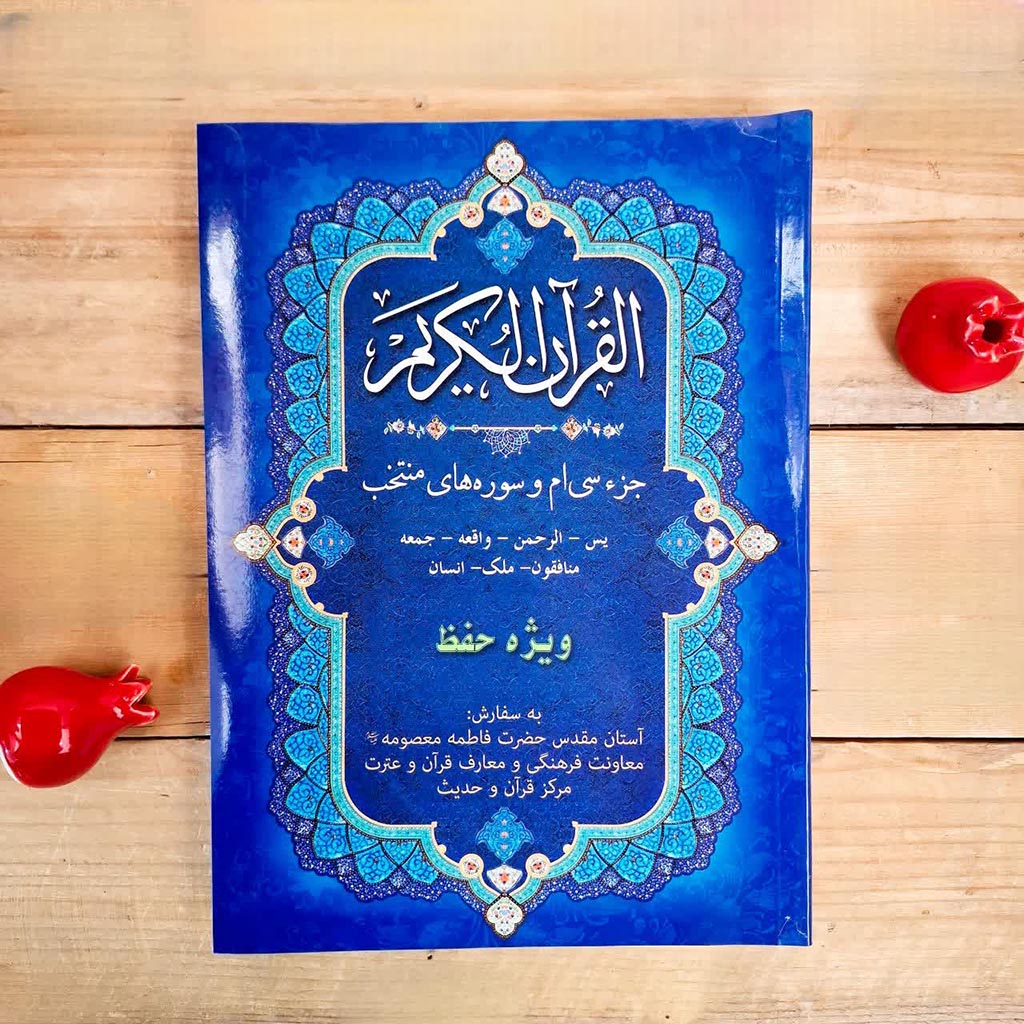 القرآن الکریم
جزء سی‌ام و سوره‌های منتخب
یس - الرحمن - واقعه - جمعه
منافقون - ملک - انسان
ویژه حفظ
به سفارش:
آستان مقدس حضرت فاطمه معصومه
معاونت فرهنگی و معارف قرآن و عترت
مرکز قرآن و حدیث